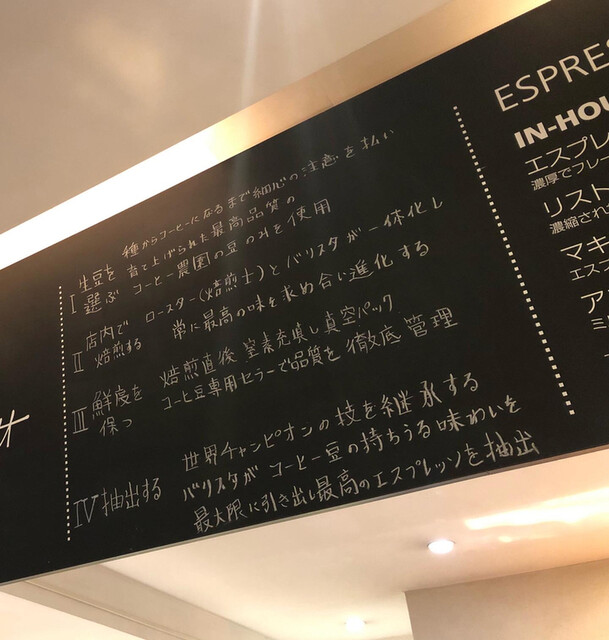 種からコーヒーになるまで細心の注意を払い
I 生豆を 育て上げられた最高品質の
選ぶ コーヒー農園の豆のみを使用
II 店内で ロースター(焙煎士)とバリスタが一体化し
焙煎する 常に最高の味を求め合い進化する
III 鮮度を 焙煎直後窒素充填し真空パック
保つ コーヒー豆専用セラーで品質を徹底管理
世界チャンピオンの技を継承する
IV 抽出する バリスタがコーヒー豆の持ちうる味わいを
最大限に引き出し最高のエスプレッソを抽出
ESPRE
IN-HOU
エスプレ
濃厚でフレー
リスト
濃縮され
マキ
エスプ
ア
ミ